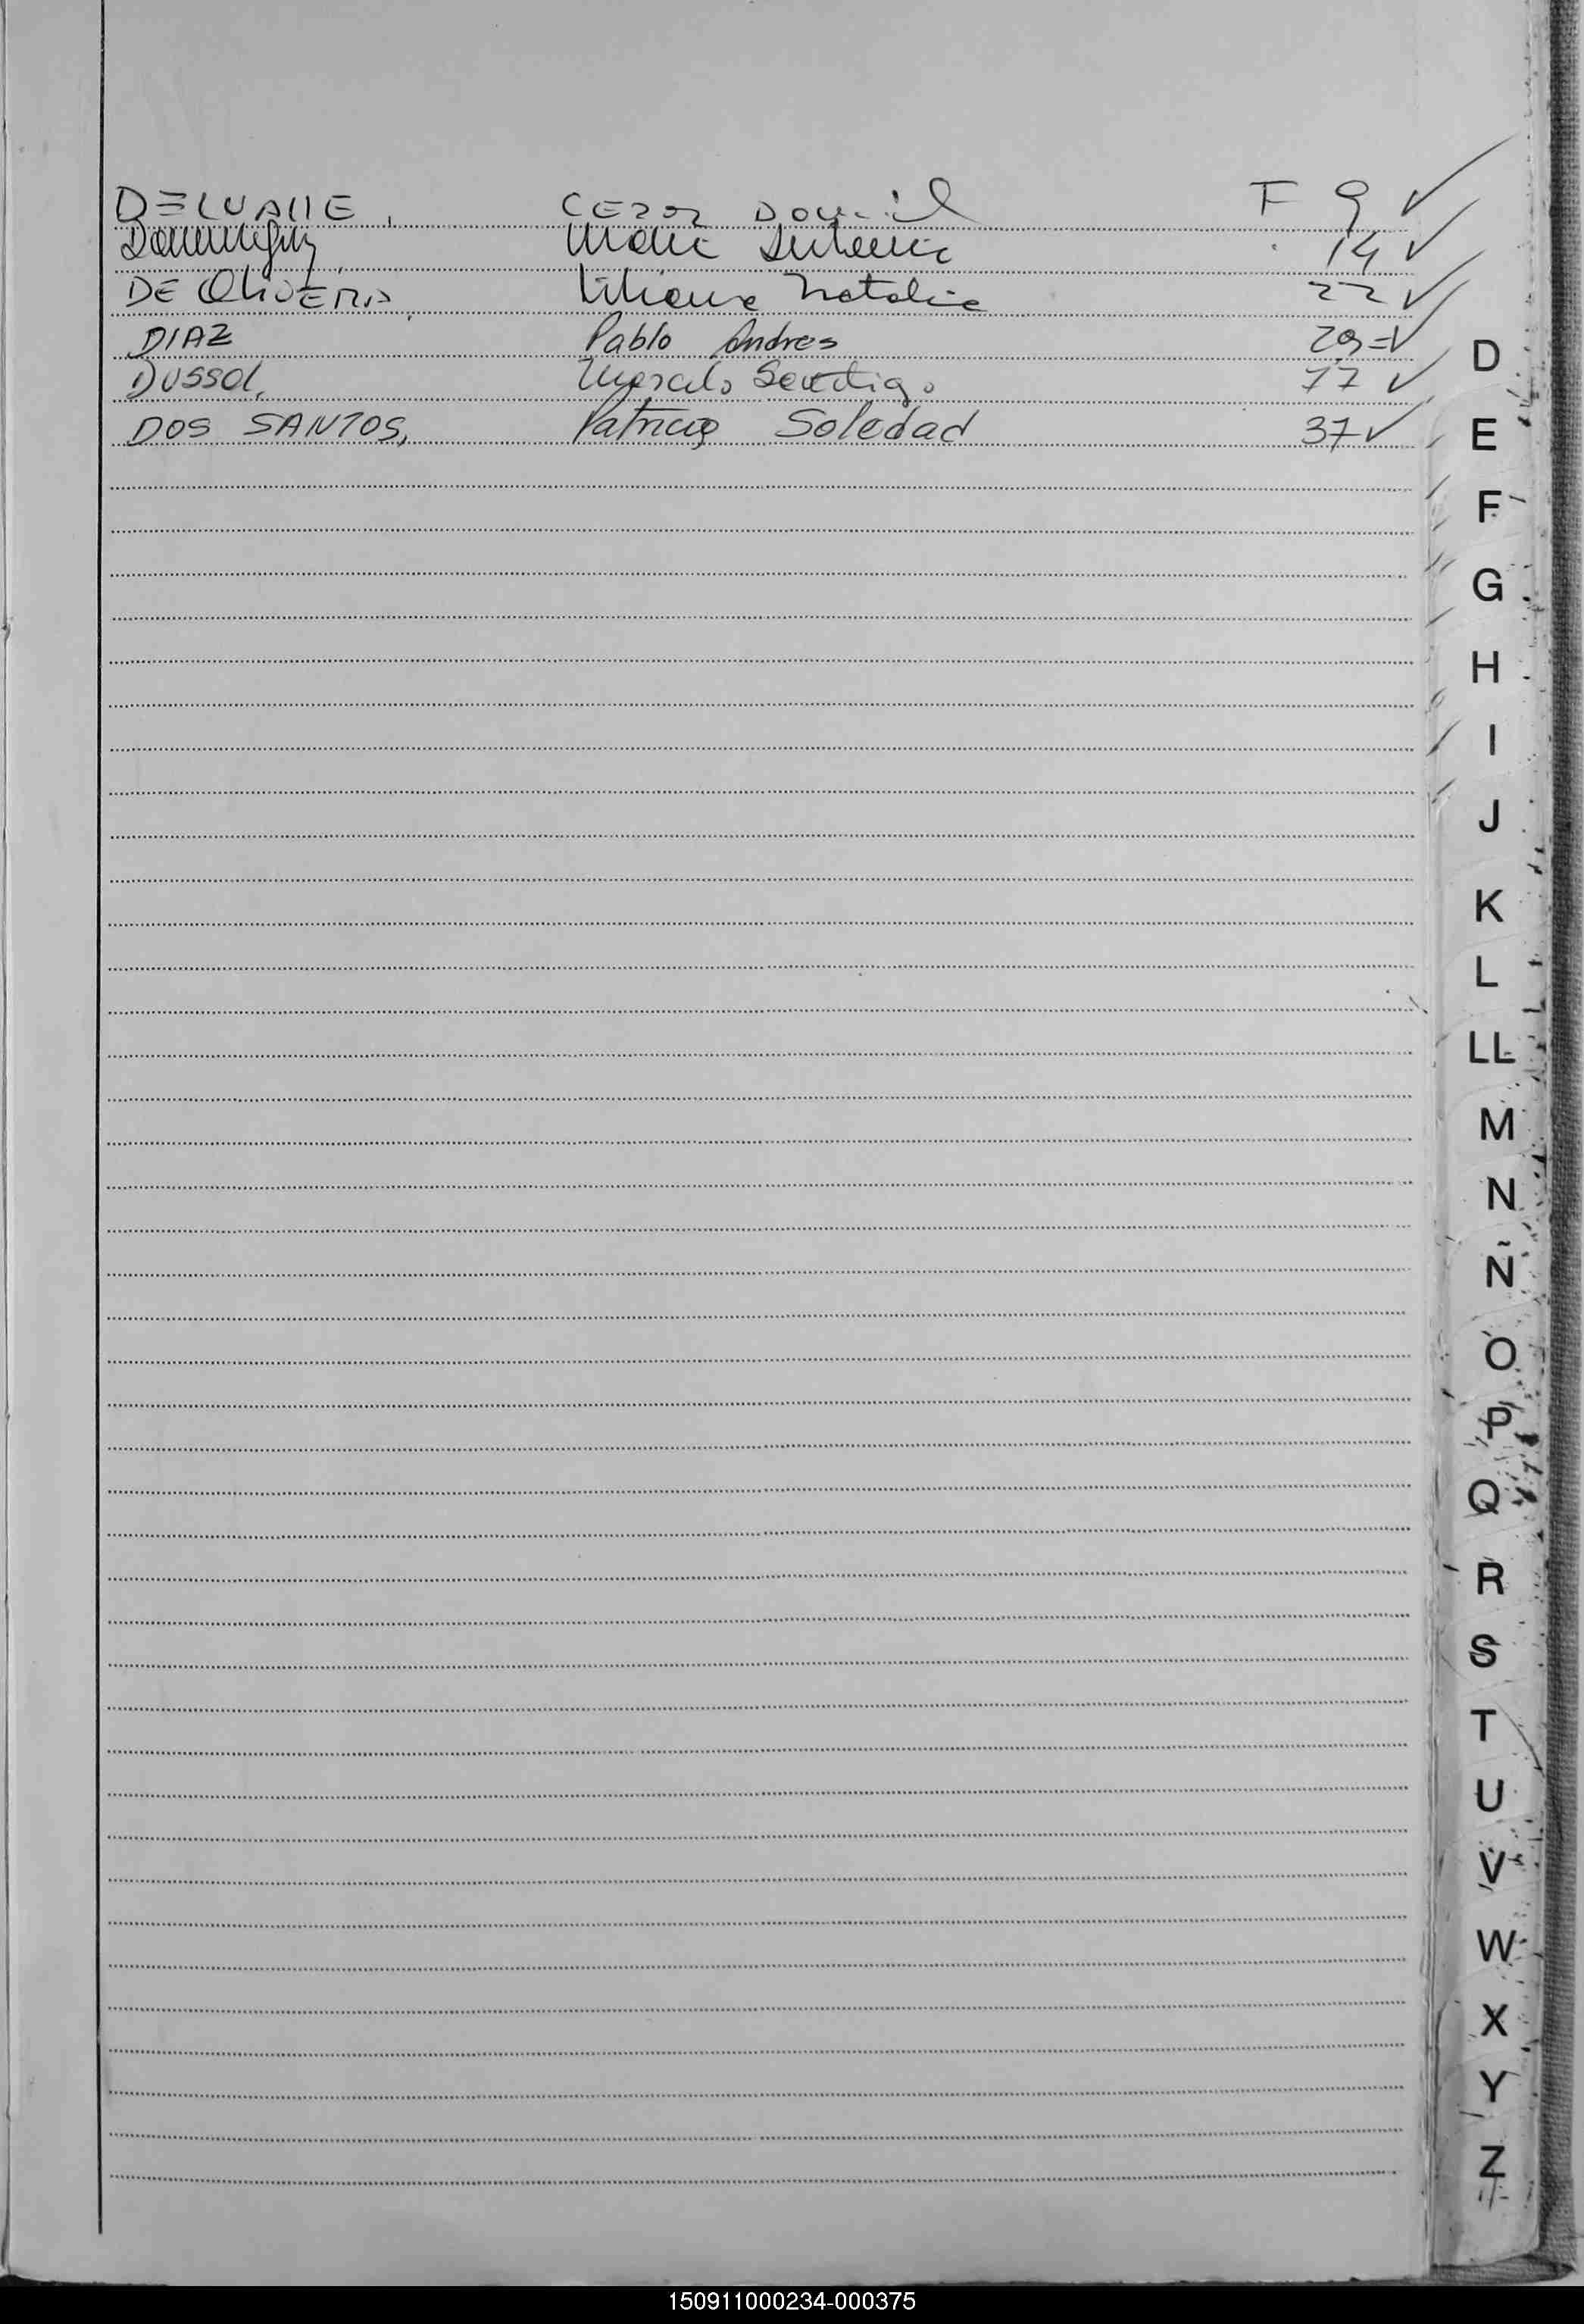 DELVALLE, CEZAR Daniel F 9 ✓
Dominguez, Maria Antonia 14 ✓
DE OLIVERA Liliana Natalia 22 ✓
DIAZ Pablo Andres 29=✓
DUSSOL, Marcelo Santiago 77 ✓
DOS SANTOS, Patricia Soledad 37 ✓
D
E
F
G
H
I
J
K
L
LL
M
N
Ñ
O
P
Q
R
S
T
U
V
W
X
Y
Z
150911000234-000375